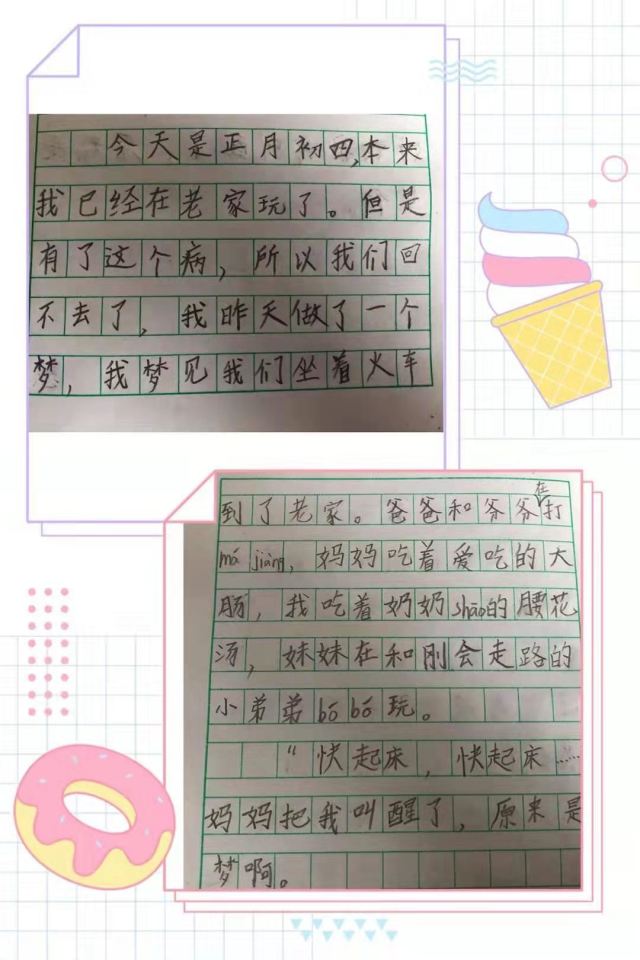 今天是正月初四,本来
我已经在老家玩了。但是
有了这个病，所以我们回
不去了，我昨天做了一个
梦，我梦见我们坐着火车
到了老家。爸爸和爷爷在打
má jiàng，妈妈吃着爱吃的大
肠，我吃着奶奶shāo的腰花
汤，妹妹在和刚会走路的
小弟弟bō bō玩。
“快起床，快起床……
妈妈把我叫醒了，原来是
梦啊。